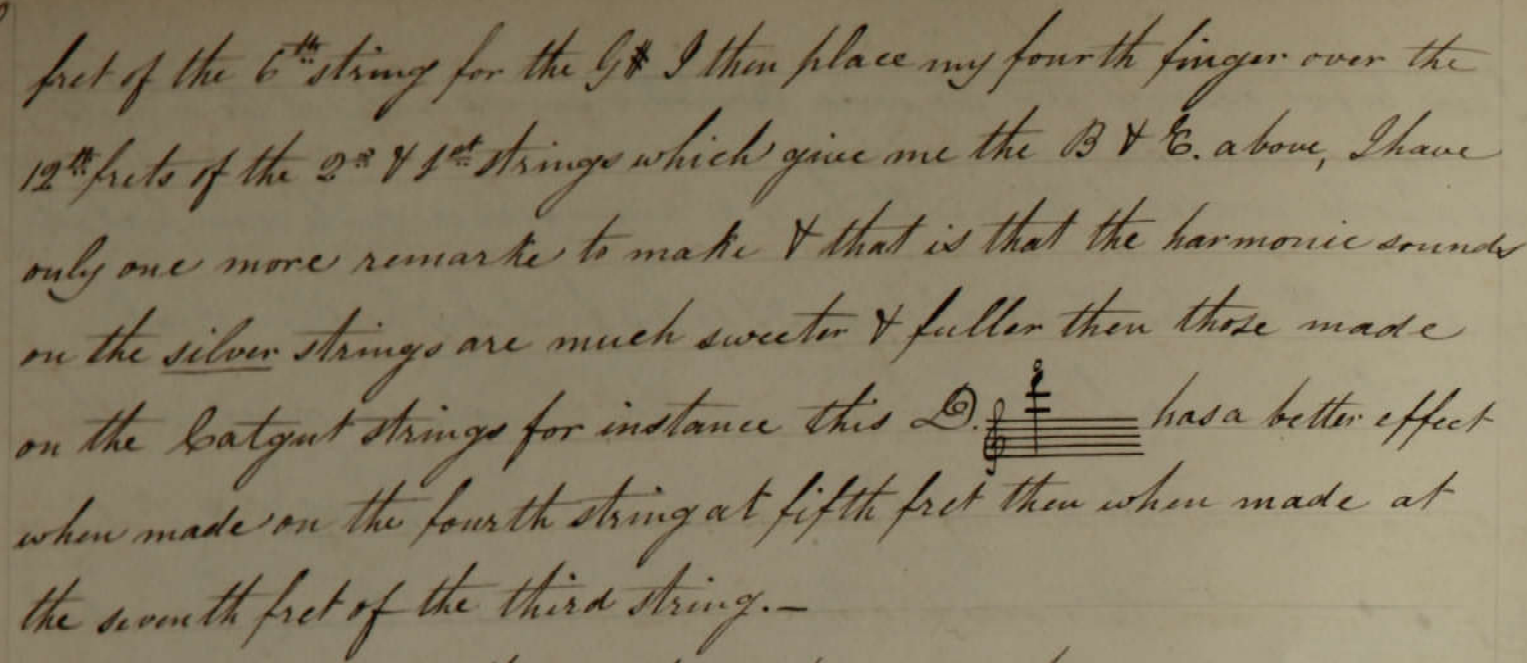 fret of the 6th string for the G# I then place my fourth finger over the
12th frets of the 2d & 1st strings which give me the B & E. above, I have
only one more remarke to make & that is that the harmonic sounds
on the silver strings are much sweeter & fuller then those made
on the Catgut strings for instance this D. has a better effect
when made on the fourth string at fifth fret then when made at
the seventh fret of the third string.—